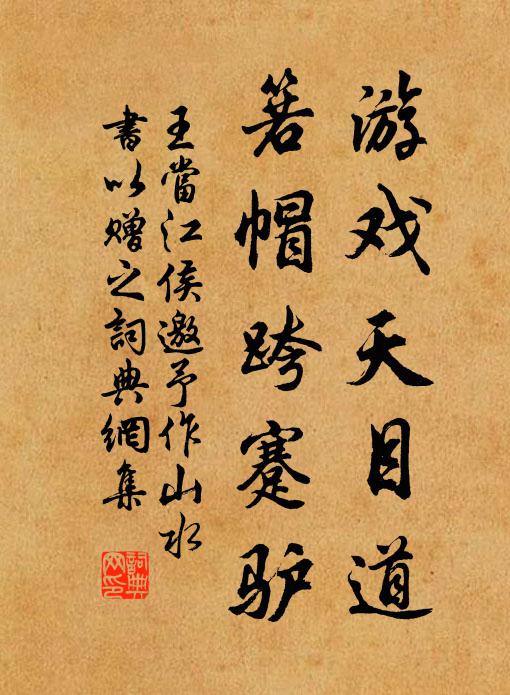 游戏天目道
箬帽跨蹇驴
王當江侯邀予作山水
書以贈之詞典網集
詞典网印